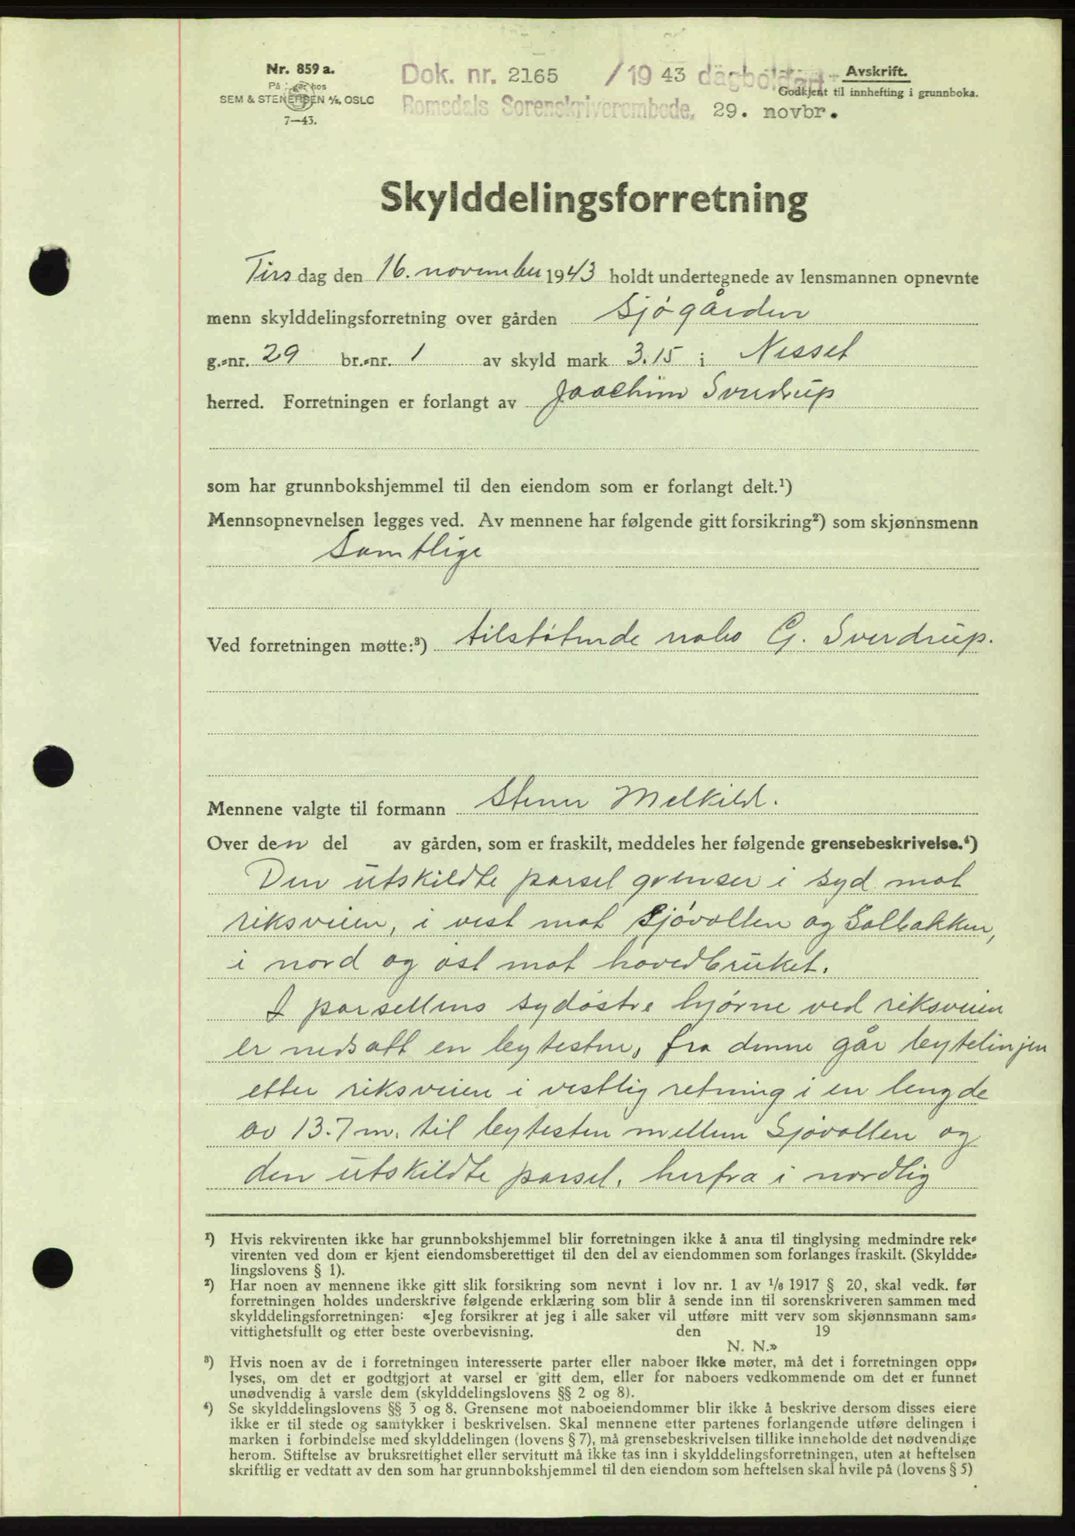 Nr. 859 a.
På
SEM & STENERSEN A/S, OSLO
7—43.
Dok. nr. 2165 /19 43 dagboksført
Romsdals Sorenskriverembede, 29. novbr.
Avskrift.
Godkjent til innhefting i grunnboka.
Skylddelingsforretning
Tirs dag den 16. november 1943 holdt undertegnede av lensmannen opnevnte
menn skylddelingsforretning over gården Sjøgården
g.-nr. 29 br.-nr. 1 av skyld mark 3.15 i Nesset
herred. Forretningen er forlangt av Joachim Sverdrup
som har grunnbokshjemmel til den eiendom som er forlangt delt.¹)
Mennsopnevnelsen legges ved. Av mennene har følgende gitt forsikring²) som skjønnsmenn
Samtlige
Ved forretningen møtte:³) tilstøtende nabo G. Sverdrup.
Mennene valgte til formann Stener Melkild.
Over den del av gården, som er fraskilt, meddeles her følgende grensebeskrivelse.⁴)
Den utskildte parsel grenser i syd mot
riksveien, i vest mot Sjøvollen og Solbakken,
i nord og øst mot hovedbruket.
I parsellens sydøstre hjørne ved riksveien
er nedsatt en bytesten, fra denne går bytelinjen
etter riksveien i vestlig retning i en lengde
av 13.7 m. til bytesten mellem Sjøvollen og
den utskildte parsel, herfra i nordlig
¹) Hvis rekvirenten ikke har grunnbokshjemmel blir forretningen ikke å anta til tinglysing medmindre rek-
virenten ved dom er kjent eiendomsberettiget til den del av eiendommen som forlanges fraskilt. (Skyldde-
lingslovens § 1).
²) Har noen av mennene ikke gitt slik forsikring som nevnt i lov nr. 1 av 1/6 1917 § 20, skal vedk. før
forretningen holdes underskrive følgende erklæring som blir å sende inn til sorenskriveren sammen med
skylddelingsforretningen: «Jeg forsikrer at jeg i alle saker vil utføre mitt verv som skjønnsmann sam-
vittighetsfullt og etter beste overbevisning. den 19
N. N.»
³) Hvis noen av de i forretningen interesserte parter eller naboer ikke møter, må det i forretningen opp-
lyses, om det er godtgjort at varsel er gitt dem, eller for naboers vedkommende om det er funnet
unødvendig å varsle dem (skylddelingslovens §§ 2 og 8).
⁴) Se skylddelingslovens §§ 3 og 8. Grensene mot naboeiendommer blir ikke å beskrive dersom disses eiere
ikke er til stede og samtykker i beskrivelsen. Skal mennene etter partenes forlangende utføre delingen i
marken i forbindelse med skylddelingen (lovens § 7), må grensebeskrivelsen tillike inneholde det nødvendige
herom. Stiftelse av bruksrettighet eller servitutt må ikke tas inn i skylddelingsforretningen, uten at heftelsen
skriftlig er vedtatt av den som har grunnbokshjemmel til den eiendom som heftelsen skal hvile på (lovens § 5)